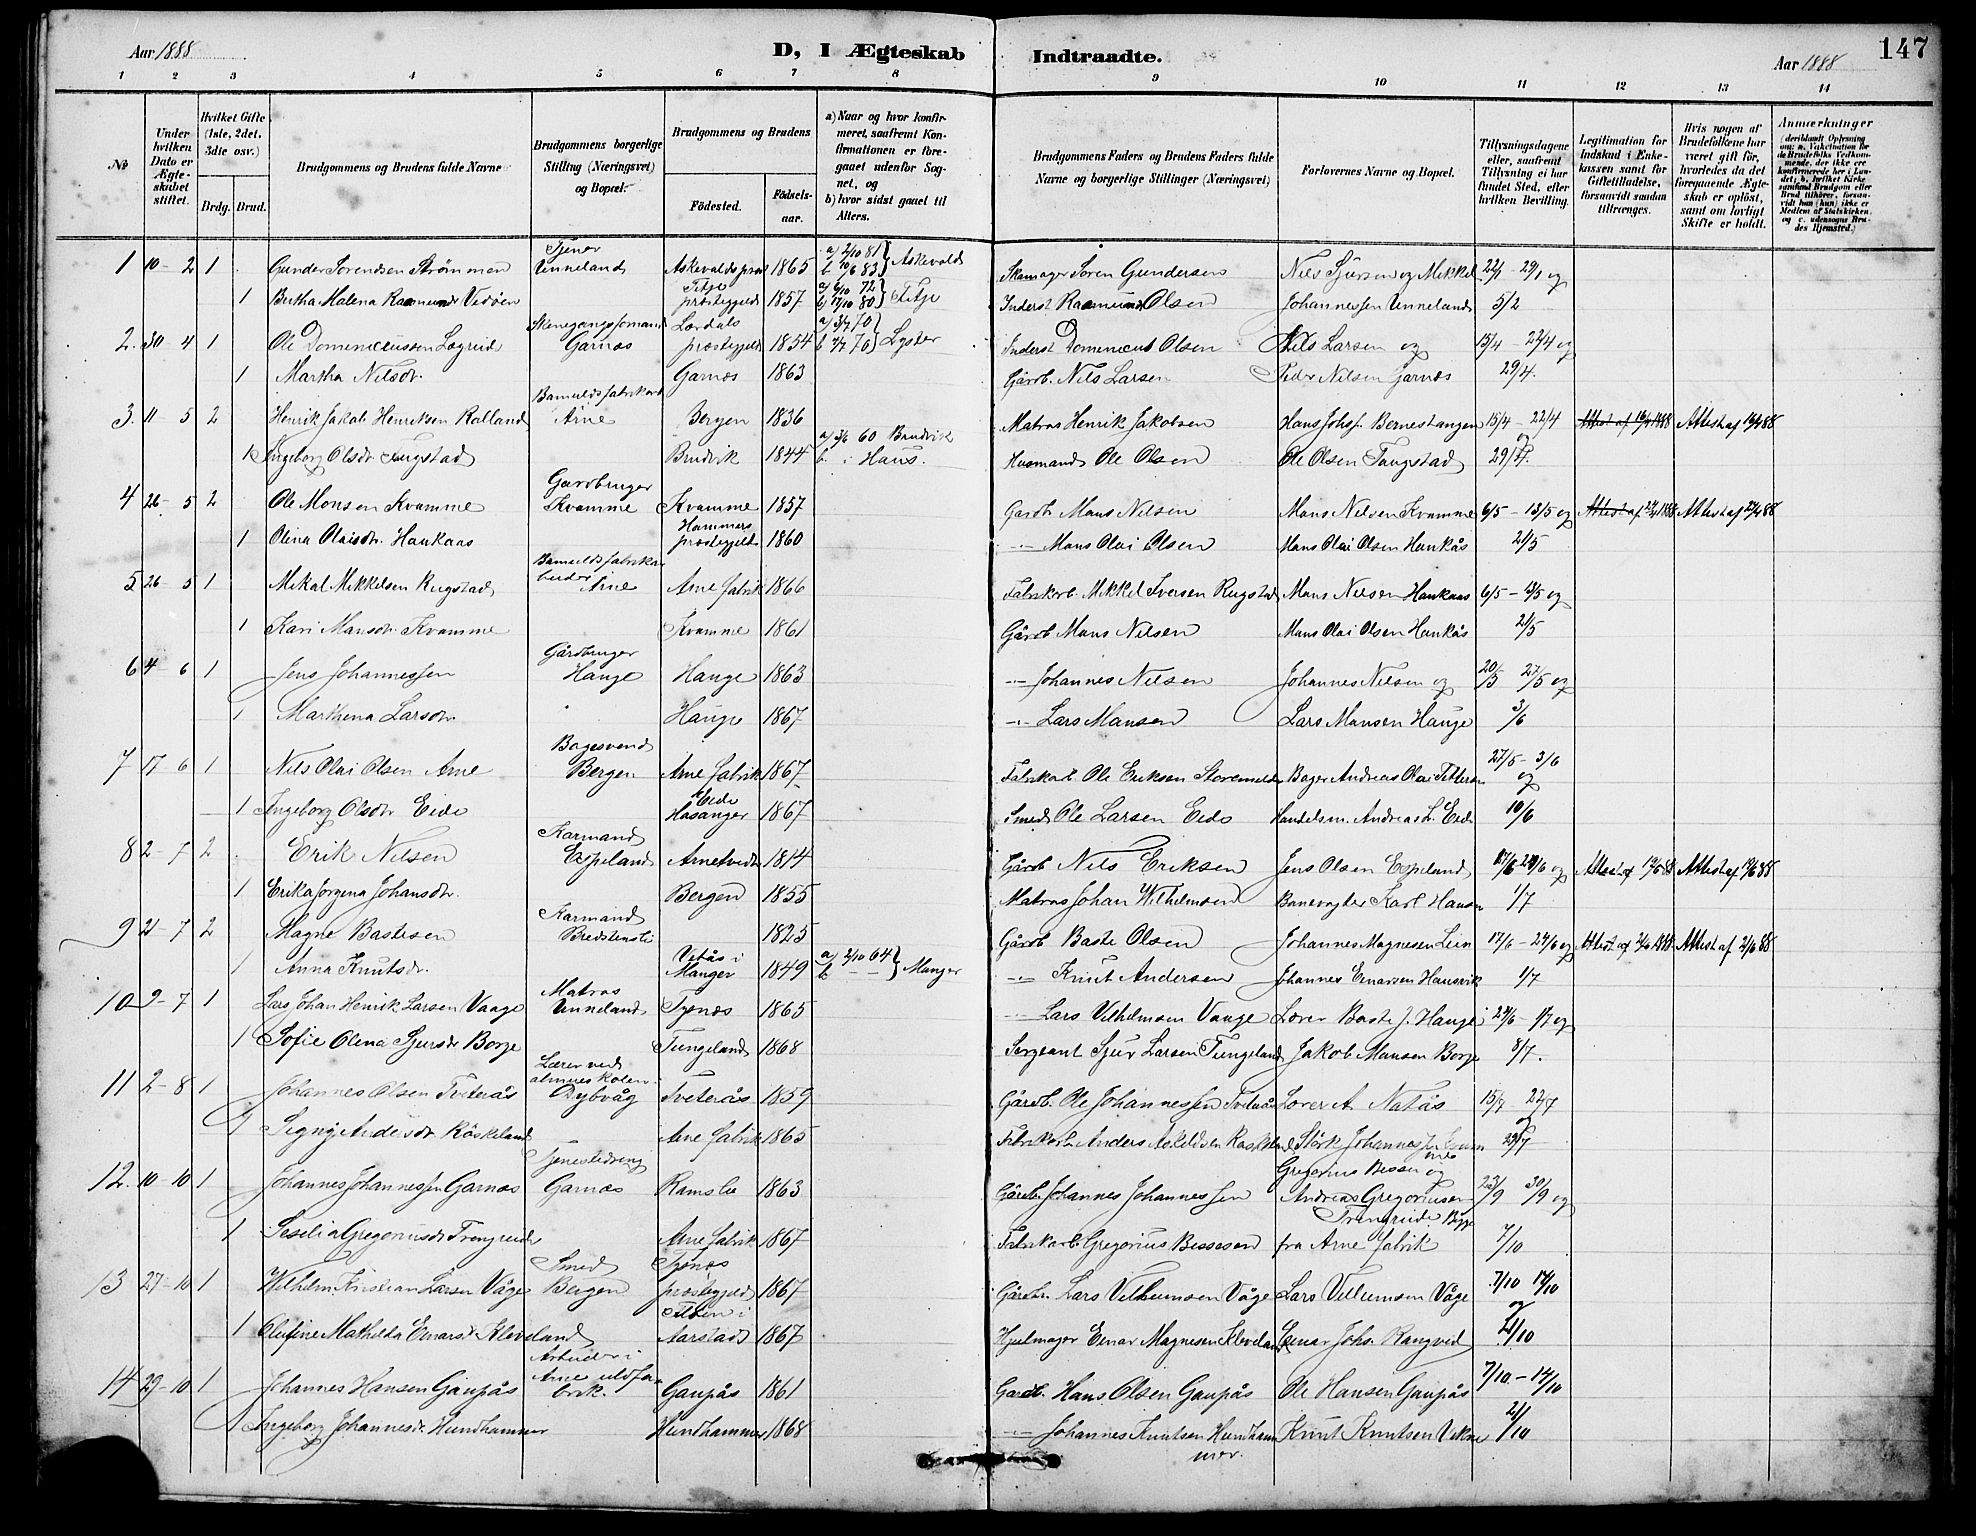 Aar 1888
D, I Ægteskab Indtraadte.
Aar 1888
147
1 2 3 4 5 6 7 8 9 10 11 12 13 14
№
Under hvilken Dato er Ægteskabet stiftet.
Hvilket Gifte (1ste, 2det, 3die osv.)
Brdg. Brud.
Brudgommens og Brudens fulde Navne
Brudgommens borgerlige Stilling (Næringsvei) og Bopæl.
Brudgommens og Brudens
Fødested.
Fødselsaar.
a) Naar og hvor konfirmeret, saafremt Konfirmationen er foregaaet udenfor Sognet, og
b) hvor sidst gaaet til Alters.
Brudgommens Faders og Brudens Faders fulde Navne og borgerlige Stillinger (Næringsvei)
Forlovernes Navne og Bopæl.
Tillysningsdagene eller, saafremt Tillysning ei har fundet Sted, efter hvilken Bevilling.
Legitimation for Indskud i Enkekassen samt for Giftetilladelse, forsaavidt saadan tiltrænges.
Hvis nogen af Brudefolkene har været gift før, hvorledes da det foregaaende Ægteskab er opløst, samt om lovligt Skifte er holdt.
Anmærkninger
1 10-2 1 Gunder Sorendsen Strømmen Tjener Unneland Askevolds præst 1865 a/ 2/10 81 b 10/6 83 Askevold Skomager Søren Gundersen Niels Sjursen og Mikkel 22/1 - 29/1 og
1 Bertha Malena Rasmusdr Vedøen Fitje prestegjeld 1857 a/ 6/10 72 b/ 17/10 80 Fitje Inderst Rasmus Olsen Johannessen Unneland 5/2
2. 30-4 1 Ole Domenicussen Lægreid Garnæs Lærdals prestegjeld 1854 a/ 3/7 70 b 70 Lyster Inderst Domenicus Olsen Nils Larsen og 15/4 - 22/4 og
1 Martha Nilsdr. Garnæs 1863 Gårdb. Nils Larsen Peder Nilsen Garnæs 29/4.
3. 11-5 2 Henrik Jakob Henriksen Rolland Bomuldsfabrikarb Arne Bergen 1836 Matros Henrik Jakobsen Hans Johs. Bernestangen 15/4 - 22/4 Attest af 16/4 1888 Attest af 16/4 88
1 Ingeborg Olsdr Tugstad Brudvik 1844 a/ 3/6 60 Brudvik b. i Haus. Husmand Ole Olsen Ole Olsen Taugstad og 29/4.
4 26-5 2 Ole Monsen Kvamme Gardbruger Kvamme Kvamme 1857 Gardb Mons Nilsen Mons Nilsen Kvamme 6/5 - 13/5 og Attest af 1888 Attest af 88
1 Olina Olaisdr. Haukaas Hammers prestegjeld 1860 -"- Mons Olai Olsen Mons Olai Olsen Haukås 21/5
5 26-5 1 Mikal Mikkelsen Rugstad Bomuldsfabrikarbeider Arne Arne fabrik 1866 Fabrikarb. Mikkel Iversen Rugstad Mons Nilsen Haukaas 6/5 - 13/5 og
1 Kari Monsdr. Kvamme Kvamme 1861 Gårdb Mons Nilsen Mons Olai Olsen Haukås 21/5
6 4-6 1 Jens Johannessen Gårdbruger Hauge Hauge 1863 -"- Johannes Nilsen Johannes Nilsen og 20/5 27/5 og
1 Marthena Larsdr. Hauge 1867 -"- Lars Monsen Lars Monsen Hauge 3/6
7 17-6 1 Nils Olai Olsen Arne Bagersvend Bergen Arne fabrik 1867 Fabrikarb Ole Eriksen Storemelen Bager Andreas Olai Pettersen 27/5 - 3/6 og
1 Ingeborg Olsdr Eide Eide Hosanger 1867 Smed Ole Larsen Eide Handelsm. Andreas L. Eide 10/6
8 2-7 2 Erik Nilsen Kårmand Espeland Arnetvedt 1814 Gårdb Nils Eriksen Jens Olsen Espeland 17/6 24/6 og Attest af 88 Attest af 88
1 Erika Jorgena Johansdr. Bergen 1855 Matros Johan Wilhelmsen Banevogter Karl Hansen 1/7
9 2-7 2 Magne Bastesen Kårmand Bredstensli 1825 Gårdb Baste Olsen Johannes Magnesen Lien 17/6 - 24/6 og Attest af 2/6 1888 Attest af 2/6 88
1 Anna Knutsdr. Vetås i Manger 1849 a/ 2/10 64 b - - Manger -"- Knut Andersen Johannes Einarsen Hausvik 1/7
10 9-7 1 Lars Johan Henrik Larsen Vaage Matros Unneland Tysnæs 1865 -"- Lars Vilhelmsen Vaage Lærer Baste J. Hauge 24/6 - 1/7 og
1 Sofie Olena Sjursdr Borge Tungeland 1868 Sergeant Sjur Larsen Tungeland Jakob Monsen Borge 8/7.
11 2-8 1 Johannes Olsen Tveterås Lærer ved almueskolen Dybvåg Tveterås 1859 Gårdb. Ole Johannessen Tveterås Lærer A. Natås 15/7 22/7
1 Signy Andersdr Röskeland Arne fabrik 1865 Fabrikarb Anders Askildsen Roskeland Johannessen og 29/7
12. 10-10 1 Johannes Johannessen Garnæs Tjenestedreng Garnæs Ramslie 1863 Gårdb. Johannes Johannessen Gregorius Bessesen og Andreas Gregoriusen 23/9 30/9 og
1 Seselia Gregoriusdr Trengreide Arne fabrik 1867 Fabrikarb. Gregorius Bessesen Trengreide Begge fra Arne fabrik 7/10
13 27-10 1 Wilhelm Kristian Larsen Våge Smed Bergen Tysnæs prestegjeld 1867 Gårdb. Lars Vilhelmsen Våge Lars Villumsen Våge 7/10 14/10
1 Olufine Mathilda Einarsdr Kleveland i Aarstad 1867 Hjulmager Einar Magnesen Kleveland Einar Johs. Rongved og 21/10
14 29-10 1 Johannes Hansen Gaupås Arbeider i Arne uldfabrik. Gaupås 1861 Gardb. Hans Olsen Gaupås Ole Hansen Gaupås 7/10 - 14/10
1 Ingeborg Johannesdr. Hundhammer Hundhammer 1868 -"- Johannes Knutsen Hundhammer. Knut Knutsen Vikne 21/10